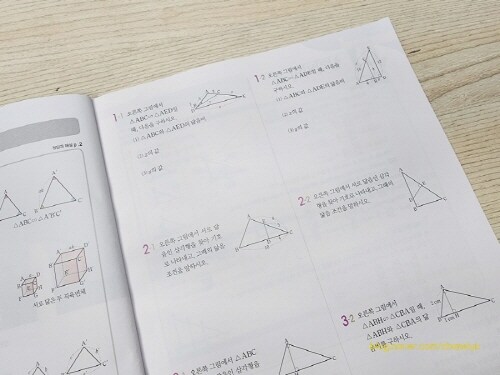 1-1 오른쪽 그림에서
△ABC∽△AED일
때, 다음을 구하시오.
(1) △ABC와 △AED의 닮음비
(2) x의 값
(3) y의 값
1-2 오른쪽 그림에서
△ABC∽△ADE일 때, 다음을
구하시오.
(1) △ABC와 △ADE의 닮음비
(2) x의 값
(3) y의 값
2-1 오른쪽 그림에서 서로 닮
음인 삼각형을 찾아 기호
로 나타내고, 그때의 닮음
조건을 말하시오.
2-2 오른쪽 그림에서 서로 닮음인 삼각
형을 찾아 기호로 나타내고, 그때의
닮음 조건을 말하시오.
오른쪽 그림에서 △ABC
3-2 오른쪽 그림에서
△ABH∽△CBA일 때,
△ABH와 △CBA의 닮
음비를 구하시오.
△ABC∽△A'B'C'
서로 닮은 두 직육면체